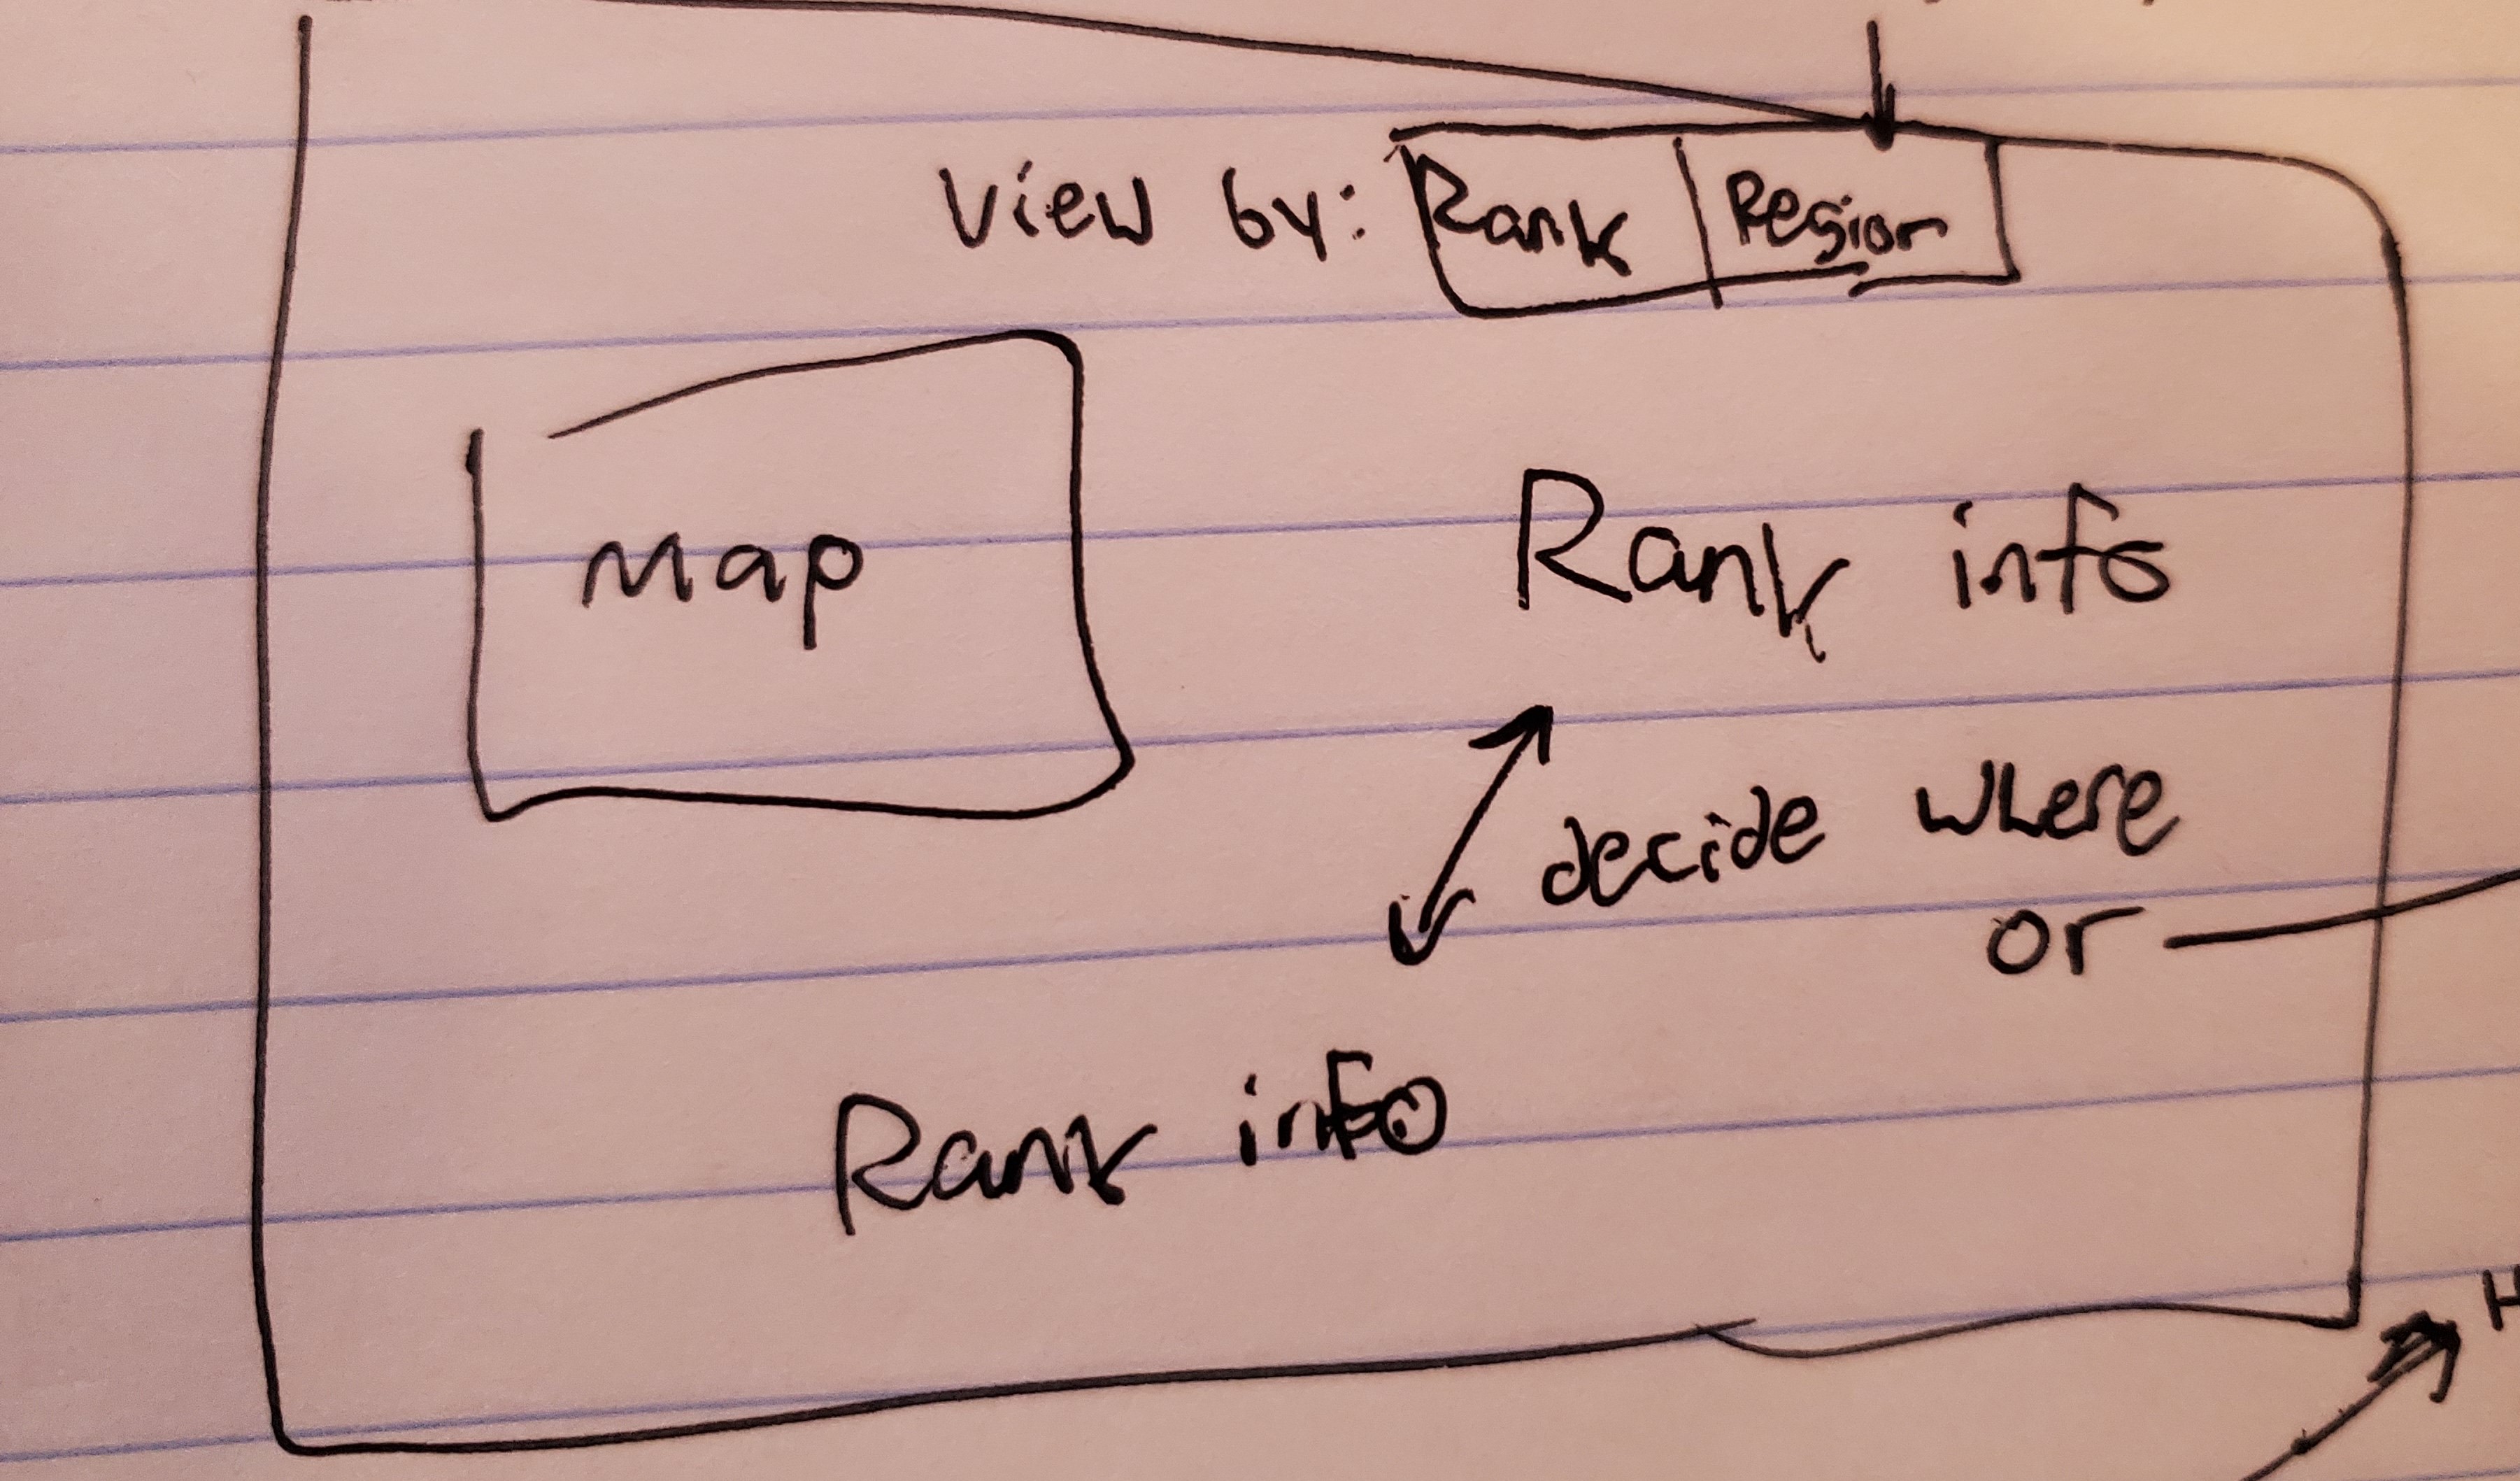 View by: Rank Region
Map
Rank info
decide where
or
Rank info